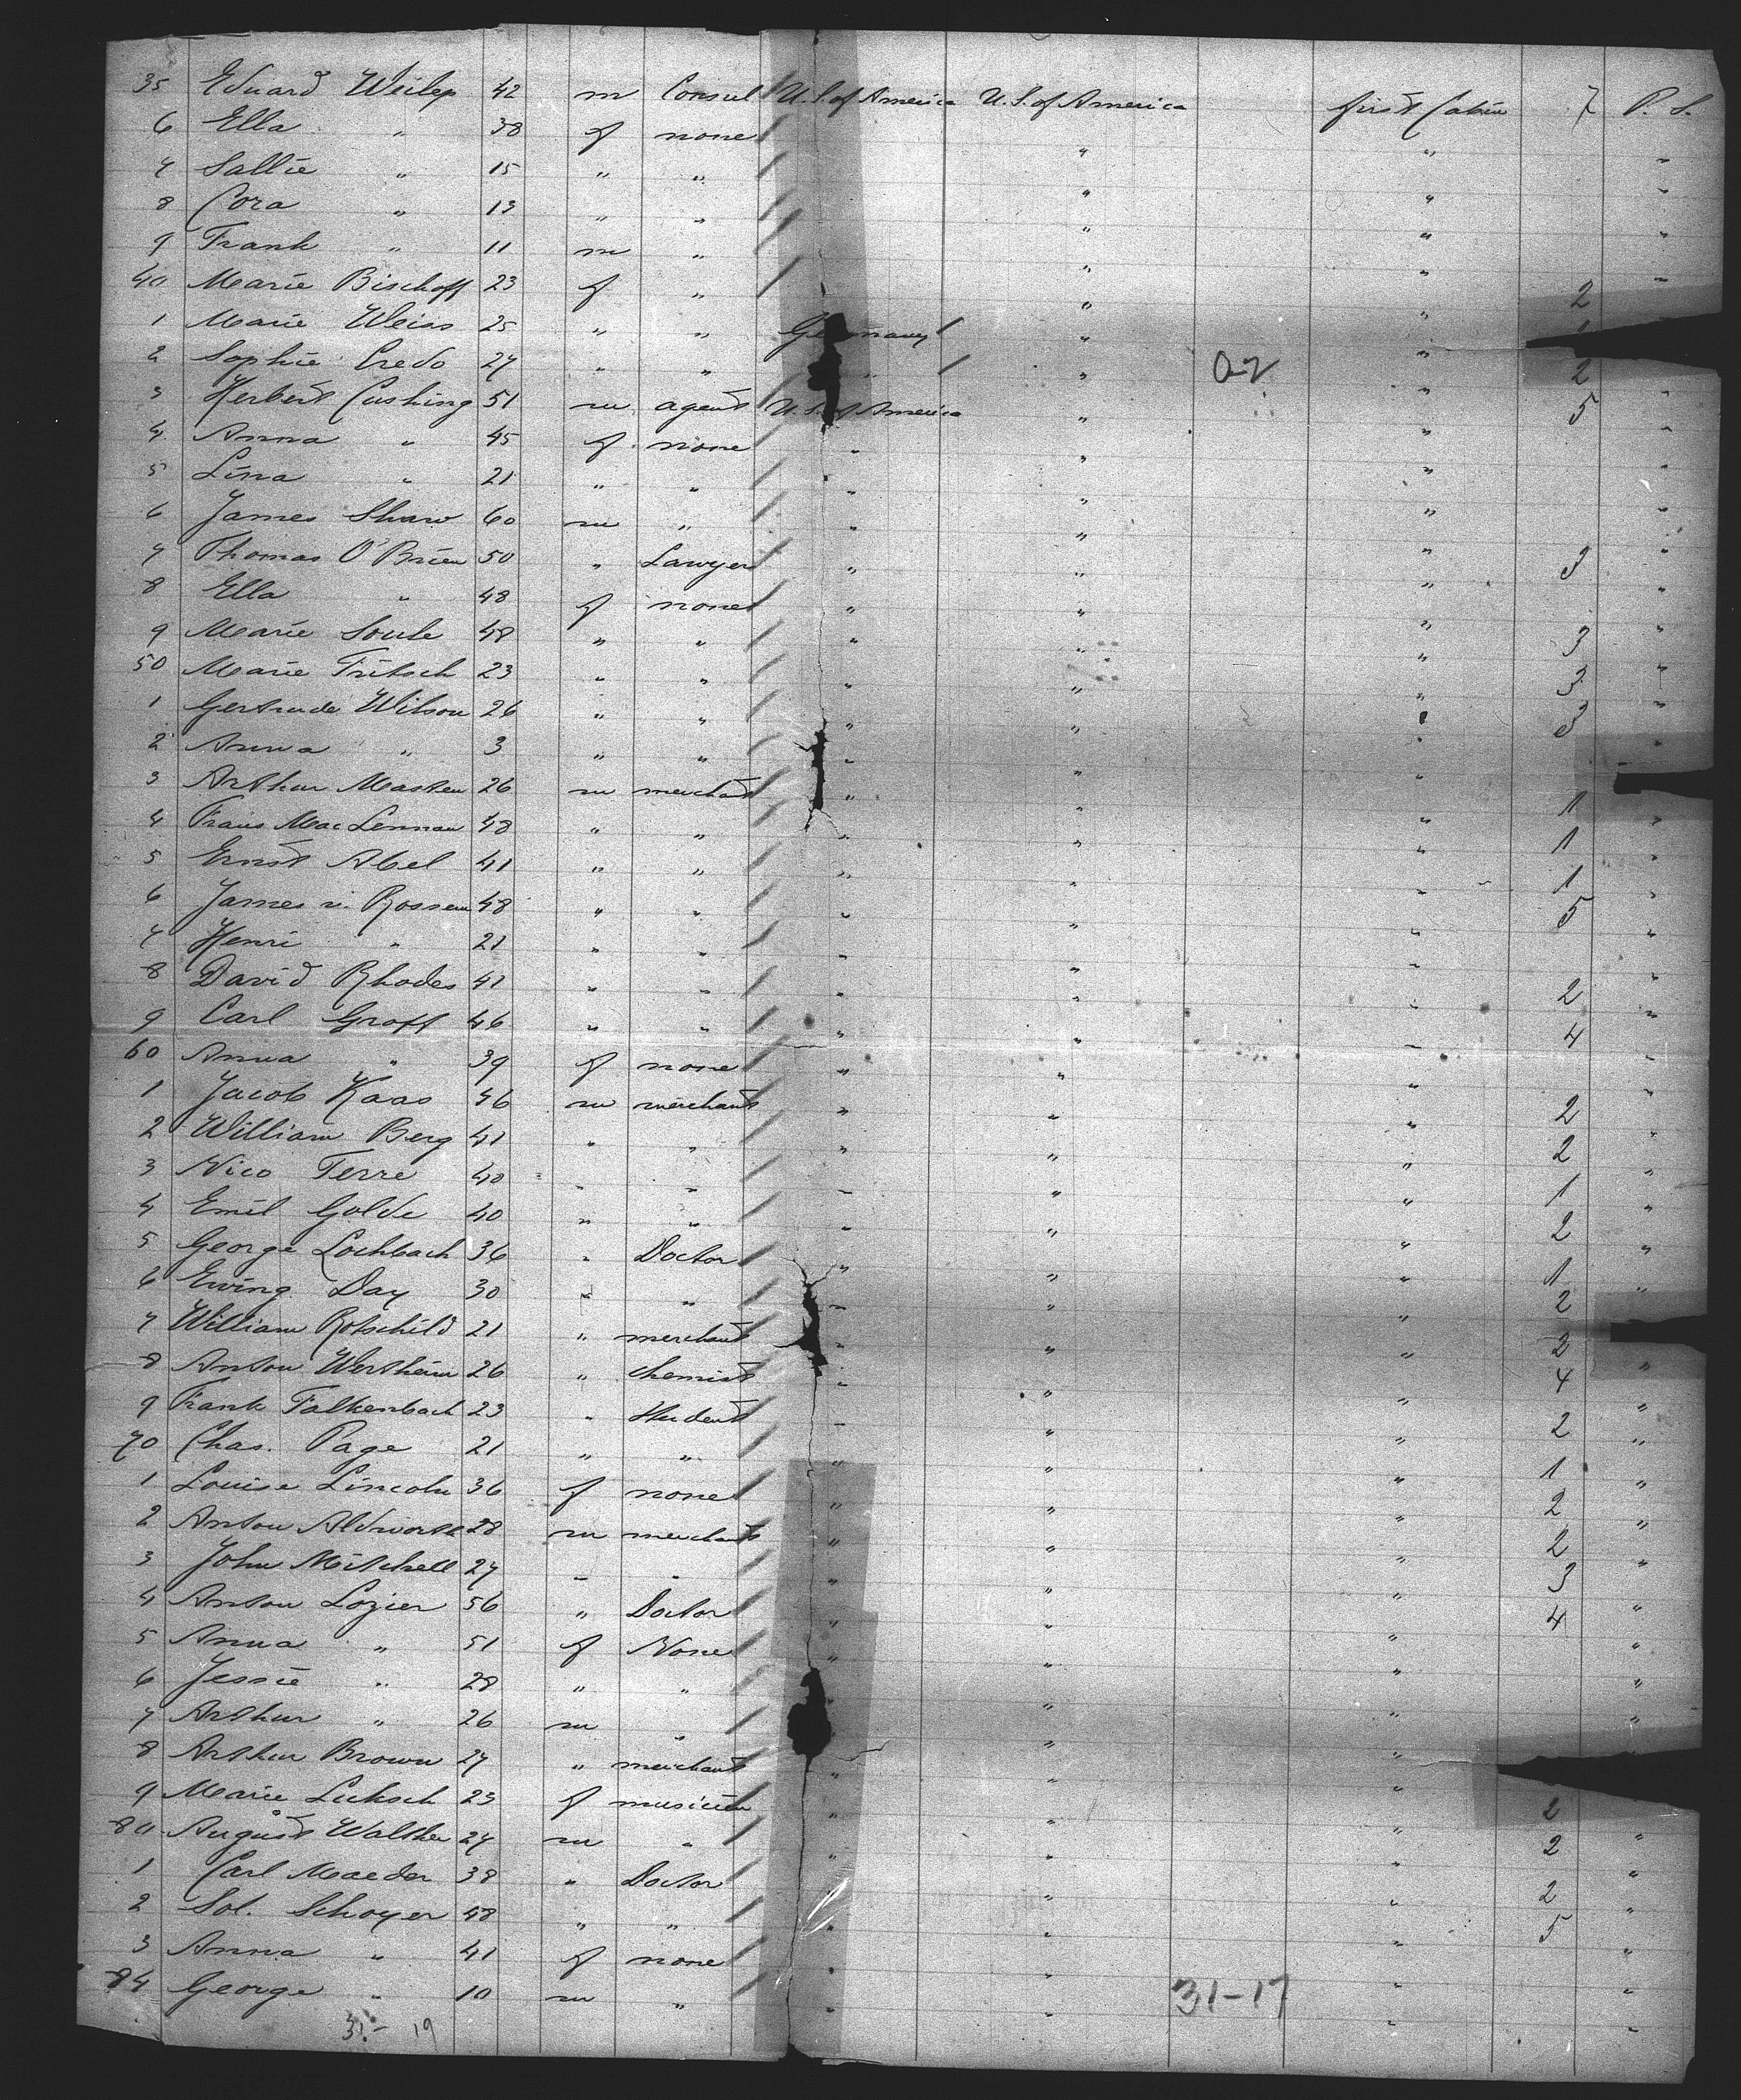 35 Eduard Weiler 42 m Consul U.S. of America U.S. of America first Cabin 7 P. S.
6 Ella " 38 f none " " "
7 Sallie " 15 " " " " "
8 Cora " 13 " " " " "
9 Frank " 11 m " " " "
40 Marie Bischoff 23 f " " " 2
1 Marie Weiss 25 " " Germany " "
2 Sophie Credo 27 " " " " 02 " 2 "
3 Herbert Cushing 51 m agent U.S. of America " " 5 "
4 Anna " 45 f none " " " "
5 Lina " 21 " " " " " "
6 James Shaw 60 m " " " " "
7 Thomas O'Brien 50 " Lawyer " " " 3 "
8 Ella " 48 f none " " " "
9 Marie Soule 48 " " " " " 3 "
50 Marie Fritsch 23 " " " " " 3 "
1 Gertrude Wilson 26 " " " " " 3 "
2 Anna " 3 " " " " " "
3 Arthur Masten 26 m merchant " " " 1 "
4 Frans MacLennan 48 " " " " " 1 "
5 Ernst Abel 41 " " " " " 1 "
6 James v. Rossem 48 " " " " " 5 "
7 Henri " 21 " " " " " "
8 David Rhodes 41 " " " " " 2 "
9 Carl Groff 46 " " " " " 4 "
60 Anna " 39 f none " " " "
1 Jacob Kaas 46 m merchant " " " 2 "
2 William Berg 41 " " " " " 2 "
3 Nico Terre 40 " " " " " 1 "
4 Emil Golde 40 " " " " " 2 "
5 George Lochbach 36 " Doctor " " " 1 "
6 Ewing Day 30 " " " " " 2
7 William Rotschild 21 " merchant " " " 2 "
8 Anton Wertheim 26 " Chemist " " " 4 "
9 Frank Falkenbach 23 " Student " " " 2 "
70 Chas. Page 21 " " " " " 1 "
1 Louise Lincoln 36 f none " " " 2 "
2 Anton Aldworth 28 m merchant " " " 2 "
3 John Mitchell 27 " " " " " 3 "
4 Anton Lozier 56 " Doctor " " " 4 "
5 Anna " 51 f None " " " "
6 Jessie " 28 " " " " "
7 Arthur " 26 m " " "
8 Arthur Brown 27 " merchant " " "
9 Marie Luksch 23 f musician " " " 2 "
80 August Walther 27 m " " " " 2 "
1 Carl Maeder 38 " Doctor " " " 2 "
2 Sol. Schoyer 48 " " " " " 5 "
3 Anna " 41 f none " " " "
84 George " 10 m " " " 31-17 " "
31- 19